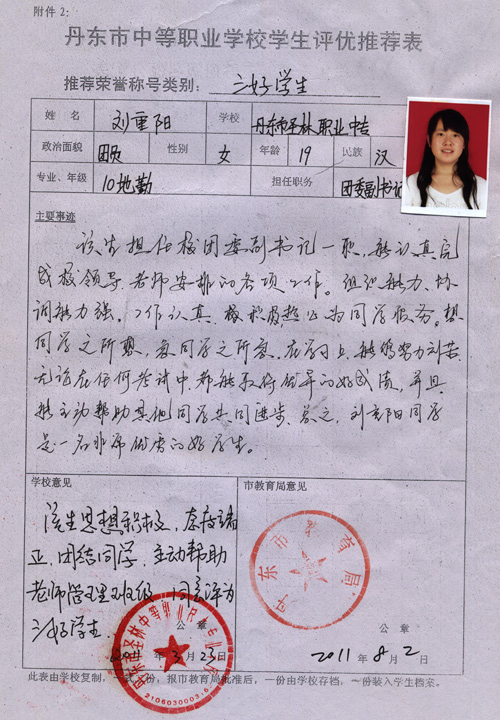 附件2：
丹东市中等职业学校学生评优推荐表
推荐荣誉称号类别： 三好学生
姓 名 刘重阳 学校 丹东市圣林职业中专
政治面貌 团员 性别 女 年龄 19 民族 汉
专业、年级 10地勤 担任职务 团委副书记
主要事迹
该生担任校团委副书记一职，能认真完
成校领导、老师安排的各项工作。组织能力、协
调能力强。工作认真、积极热心为同学服务。想
同学之所想，急同学之所急。在学习上，能够努力刻苦，
无论在任何考试中，都能取得优异的好成绩，并且
能主动帮助其他同学共同进步。总之，刘重阳同学
是一名非常优秀的好学生。
学校意见
该生思想积极，态度端
正，团结同学，主动帮助
老师管理班级，同意评为
三好学生。
公 章
2011年3月23日
丹东市圣林中等职业
2106030003
市教育局意见
丹东市教育局
公 章
2011年8月2日
此表由学校复制，一式二份，报市教育局批准后，一份由学校存档，一份装入学生档案。